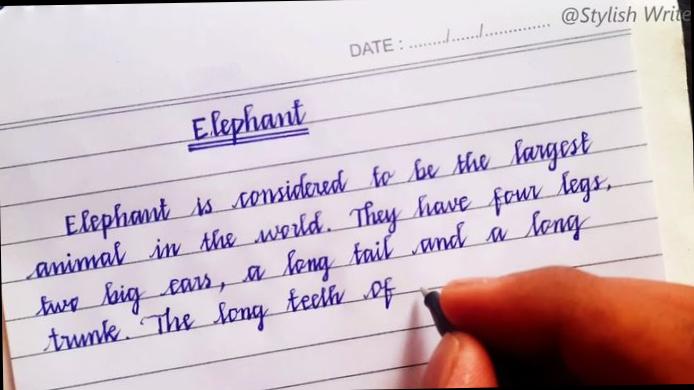 @Stylish Write
DATE : ......../....../..............
Elephant
Elephant is considered to be the largest
animal in the world. They have four legs,
two big ears, a long tail and a long
trunk. The long teeth of